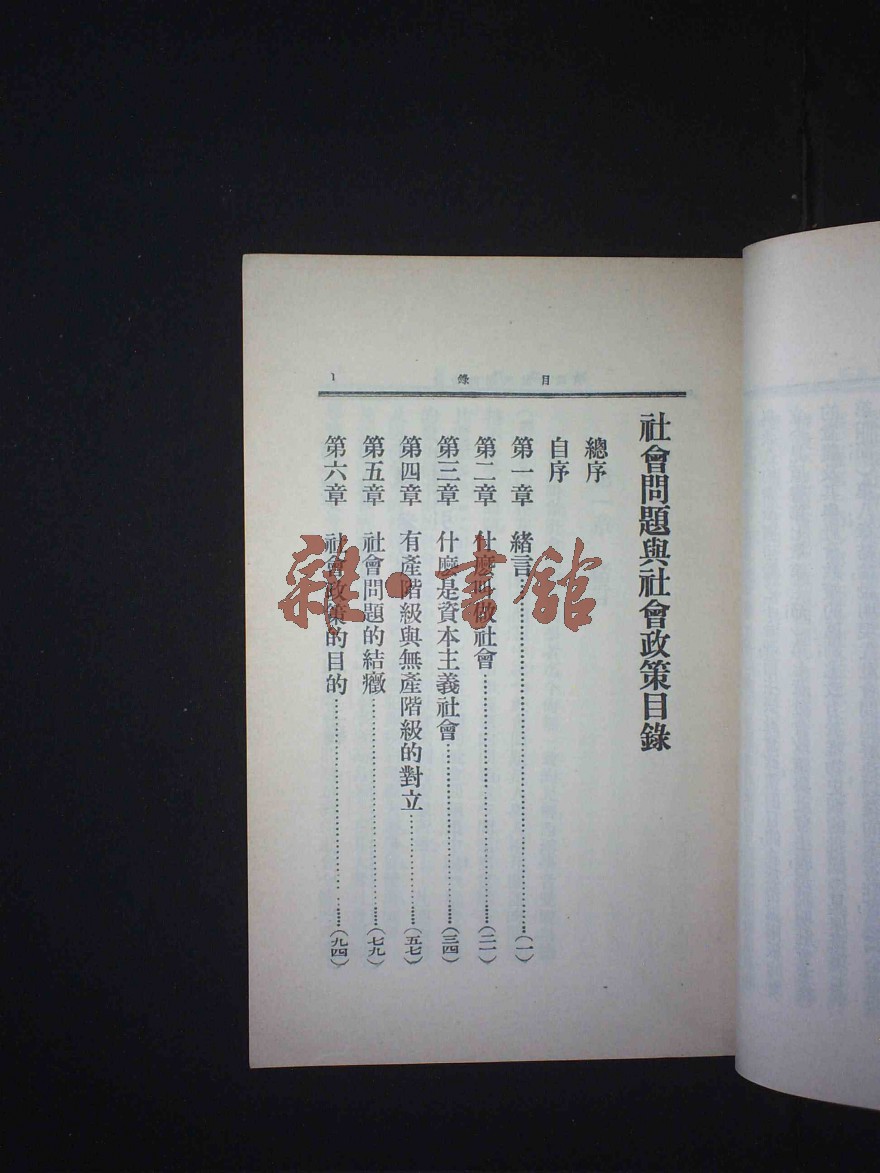 目錄
1
社會問題與社會政策目錄
總序
自序
第一章 緒言…………(一)
第二章 什麼叫做社會…………(二一)
第三章 什麼是資本主義社會…………(三四)
第四章 有產階級與無產階級的對立…………(五七)
第五章 社會問題的結癥…………(七九)
第六章 社會政策的目的…………(九四)
雜·書館